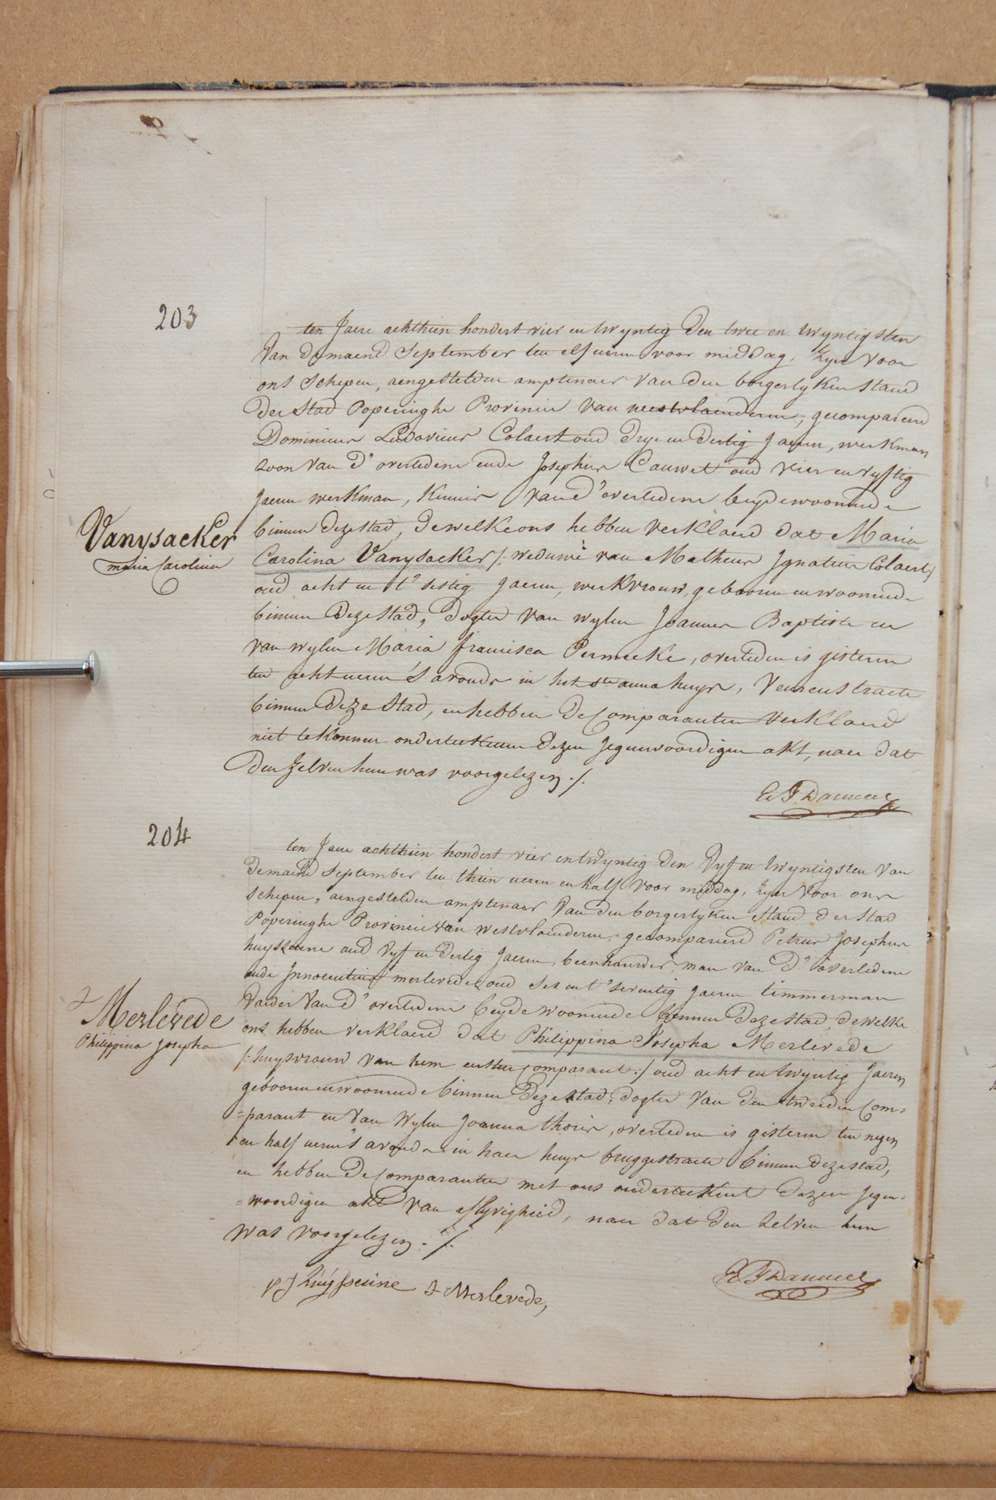 203
ten Jaere achthien hondert vier en twyntig den twee en twyntigsten
Van de maend September ten elf uren voor middag, Zyn voor
ons schepen, aengestelden amptenaer van den borgerlyken stand
der Stad Poperinghe Provincie van westvlaenderen, gecompareerd
Dominicus Ludovicus Colaert oud drye en dertig Jaeren, werkman
zoon van d'overledene ende Josephus Cauwet oud vier en vyftig
Jaeren werkman, kennis van d'overledene beyde woonende
binnen deze stad, dewelke ons hebben verklaerd dat Maria
Vanysacker
maria Carolina
Carolina Vanysacker /: weduwe van Matheus Ignatius Colaert :/
oud acht en t'sestig Jaeren, werkvrouw, geboren en woonende
binnen deze stad, dogter van wylen Joannes Baptiste en
van wylen Maria francisca Permeeke, overleden is gisteren
ten acht uren 's avonds in het ste anna huys, Veurestraete
binnen deze Stad, en hebben de Comparanten verklaerd
niet te konnen onderteekenen dezen Jegenwoordigen akt, naer dat
den zelven hun was voorgelezen ./.
204
ten Jaere achthien hondert vier en twyntig den Vyf en twyntigsten van
de maend September ten thien uren en half voor middag, Zyn voor ons
schepen, aengestelden amptenaer van den borgerlyken stand der stad
Poperinghe Provincie van westvlaenderen, gecompareerd Petrus Josephus
huyseune oud vyf en dertig Jaeren, beenhouder, man van d'overledene
ende Innocentius merlevede oud ses en t'seventig Jaeren timmerman
Vaeder van d'overledene beyde woonende binnen deze stad, dewelke
Merlevede
Philippina Josepha
ons hebben verklaerd dat Philippina Josepha Merlevede
/: huysvrouw van hem eersten Comparant :/ oud acht en twyntig Jaeren
geboren en woonende binnen deze stad, dogter van den tweeden Com-
=parant en van wylen Joanna thoris, overleden is gisteren ten negen
en half uren 's avonds in haer huys bruggestraete binnen deze stad,
en hebben de Comparanten met ons onderteekent dezen Jegen-
=woordigen akt van sterfheid, naer dat den zelven hun
was voorgelezen ./.
p J Huÿseune J Merlevede,